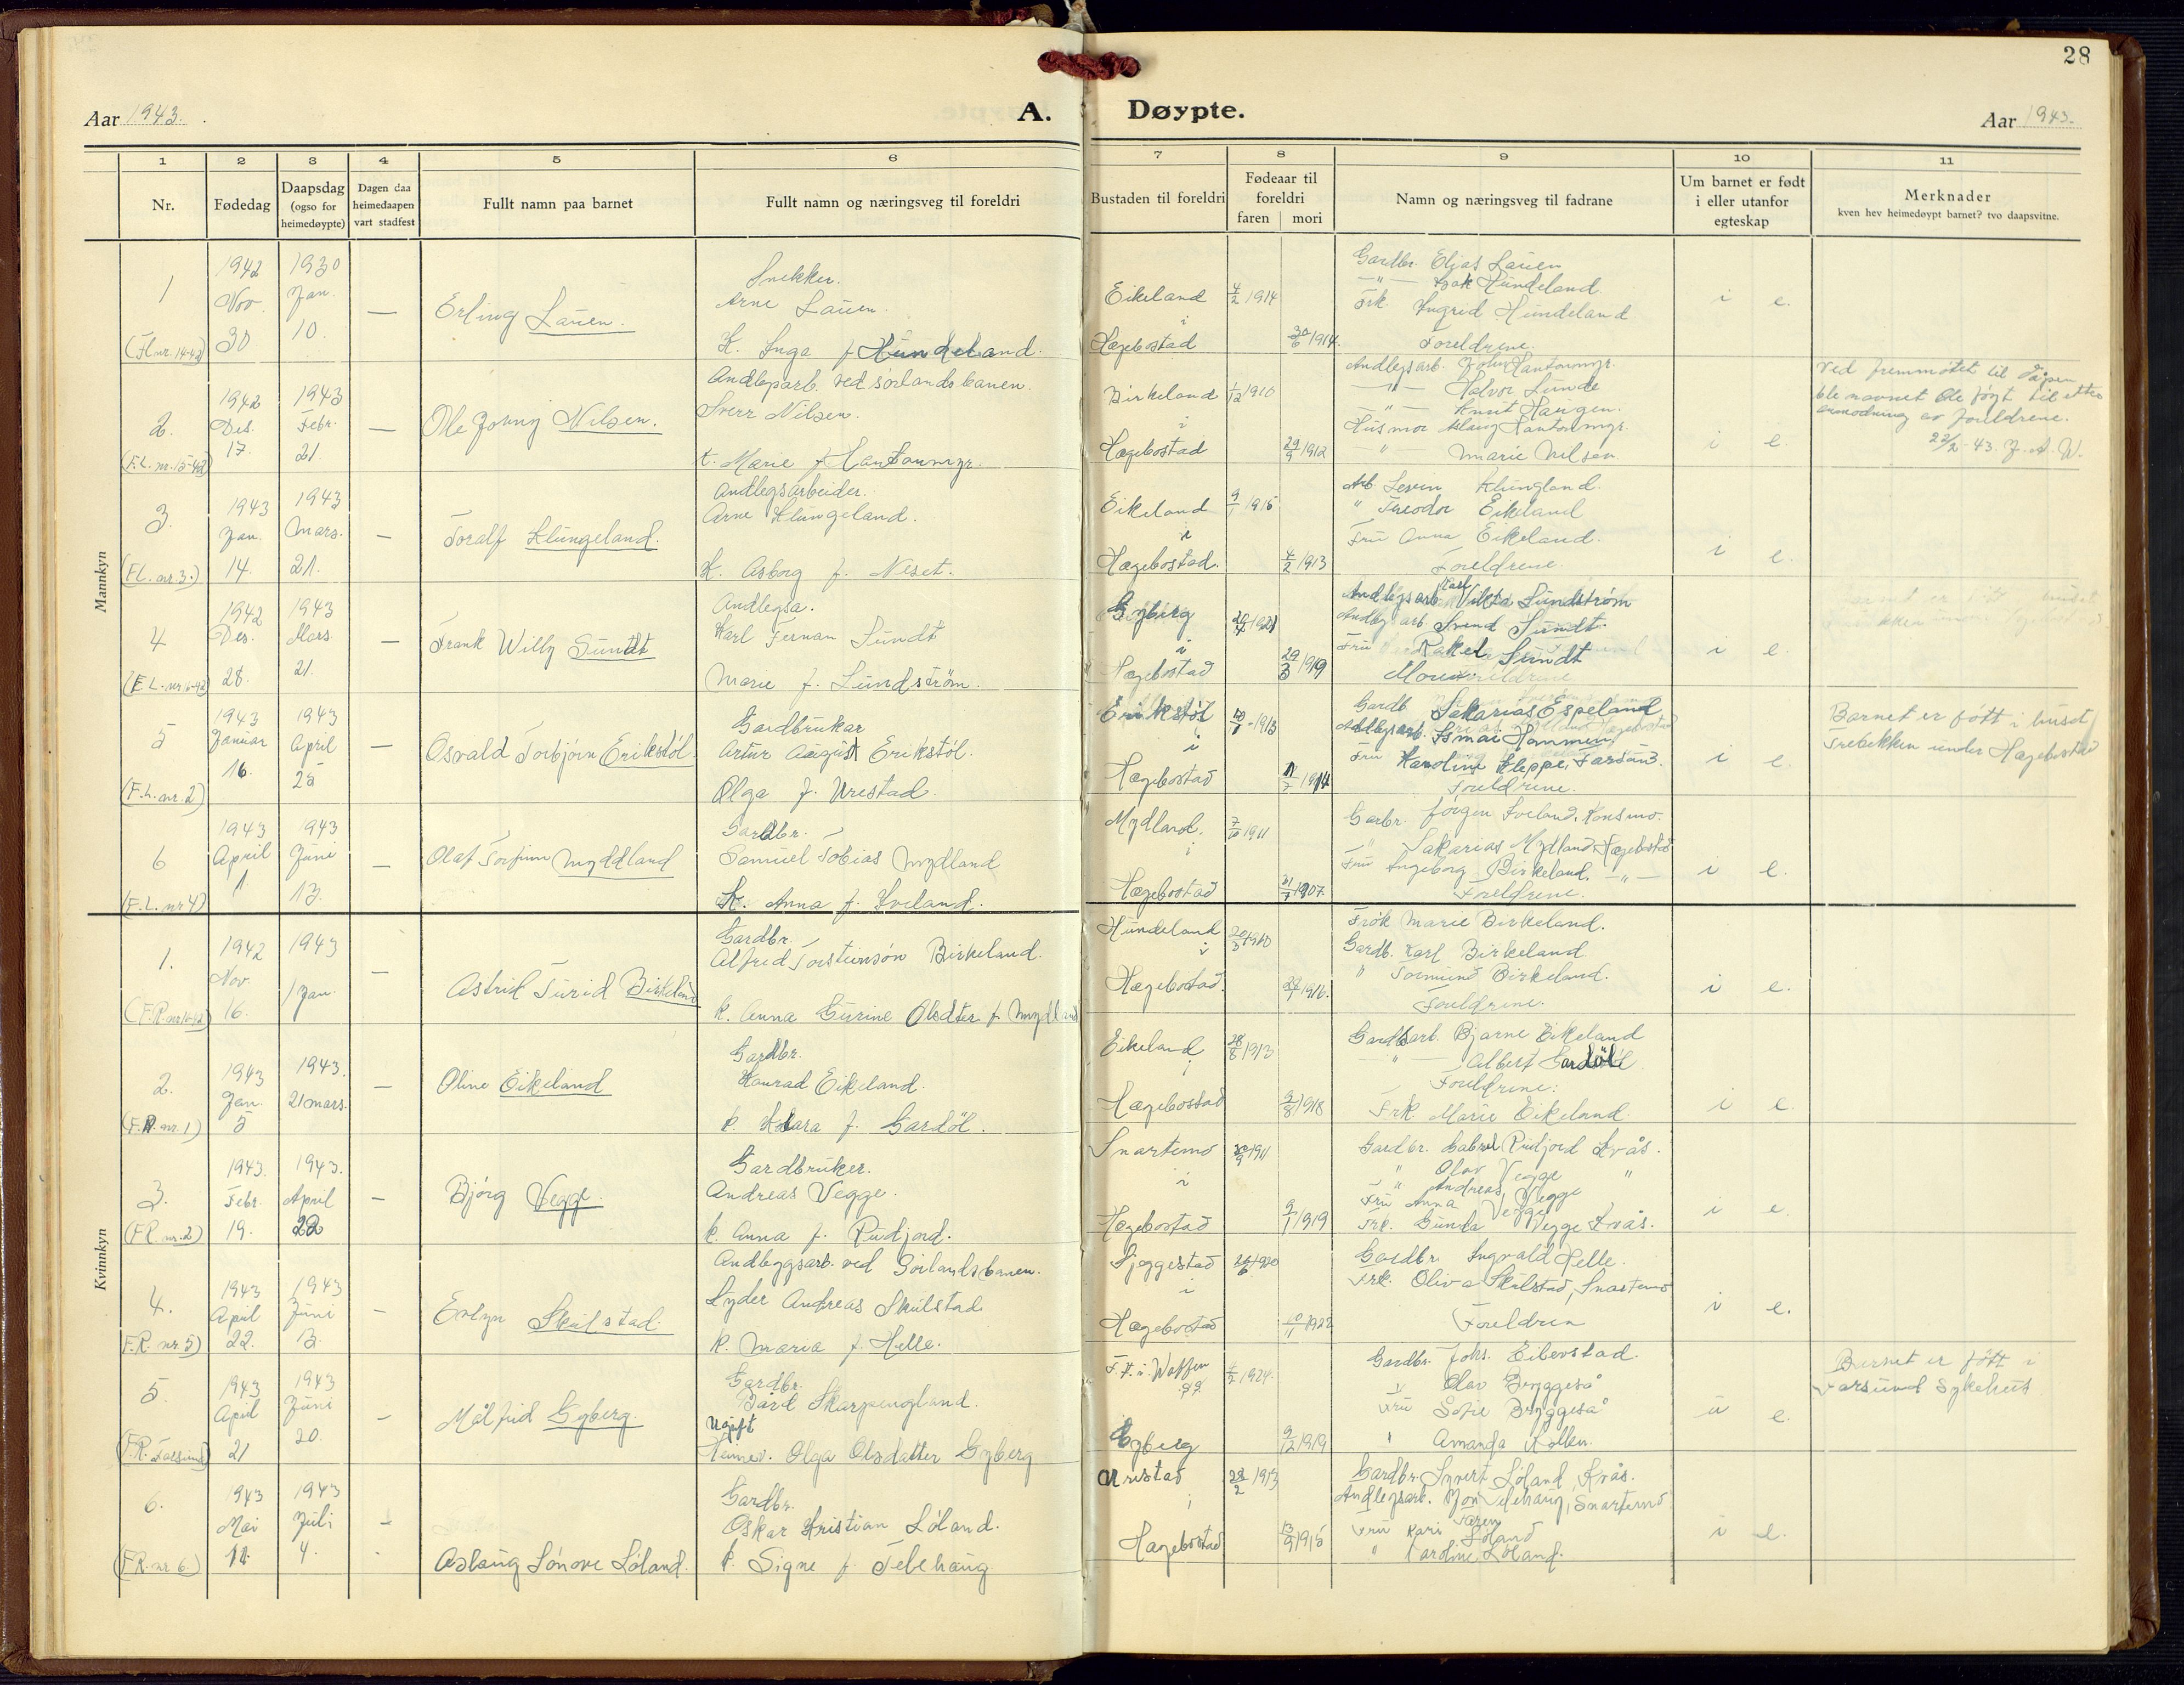 28
Aar 1943.
A. Døypte.
Aar 1943.
1 2 3 4 5 6 7 8 9 10 11
Nr.
Fødedag
Daapsdag
(ogso for
heimedøypte)
Dagen daa
heimedaapen
vart stadfest
Fullt namn paa barnet
Fullt namn og næringsveg til foreldri
Bustaden til foreldri
Fødeaar til
foreldri
faren mori
Namn og næringsveg til fadrane
Um barnet er født
i eller utanfor
egteskap
Merknader
kven hev heimedøypt barnet? tvo daapsvitne.
Mannkyn
1
(Fl nr. 14-42)
1942
Nov.
30
1930
Jan.
10.
—
Erling Lauen.
Snekker.
Arne Lauen.
K. Inga f. Hundeland.
Eikeland
i
Hægebostad
4/2 1914
30/6 1914.
Gardbr. Elias Lauen
—"— Isak Hundeland.
Frk. Ingrid Hundeland
Foreldrene.
i e.
2.
(F.L. nr. 15-42)
1942
Des.
17.
1943
Febr.
21.
—
Ole Johny Nilsen.
Andlegarb. ved sørlandsbanen.
Sverr Nilsen.
k. Marie f. Hantonmyr.
Birkeland
i
Hægebostad
1/12 1910
29/9 1912
Andlegsarb. Hantonmyr.
—"— Halvor Lunde
—"— Knut Haugen.
Husmor Hantonmyr.
—"— Marie Nilsen.
i e.
Ved fremmøtet til dåpen
ble navnet Ole føyt til etter
anmodning av foreldrene.
22/2-43. J. A. W.
3.
(FL. nr. 3.)
1943
Jan.
14.
1943
Mars.
21.
—
Toralf Klungeland.
Andlegsarbeider.
Arne Klungeland.
K. Asborg f. Neset.
Eikeland
i
Hægebostad.
9/1 1915
4/2 1913
Arb. Severin Klungland.
" Theodor Eikeland
Fru Anna Eikeland.
Foreldrene.
i e.
4
(F.L. nr 16-42)
1942
Des.
28.
1943
Mars.
21.
—
Frank Willy Sundt
Andlegsa.
Karl Fernan Sundt
Marie f. Lundström.
Gyberg
i
Hægebostad
29/3 1919
Andlegsarb Karl Lundstrøm
Andlegsarb Svend Sundt.
Fru Rakel Sundt
i e.
5
(F.L. nr. 2)
1943
Januar
16.
1943
April
25
—
Osvald Torbjørn Erikstøl.
Gardbrukar
Artur August Erikstøl.
Olga f. Urestad.
Erikstøl
i
Hægebostad
Gardb. Sakarias Espeland
Andlegsarb. Ismar Hommen
Fru Karoline Kleppe, Farsund.
Foreldrene.
i e.
Barnet er født i huset
Trebekken under Hægebostad
6
(F.L. nr 4)
1943
April
1.
1943
Juni
13.
—
Olaf Torfinn Myddland
Gardbr.
Samuel Tobias Mydland
K. Anna f. Sveland.
Mydland.
i
Hægebostad
7/10 1911
31/7 1907.
Garbr. Jørgen Sveland, Konsmo.
" Sakarias Mydland Hægebostad
Fru Ingeborg Birkeland. —"—
Foreldrene.
i e.
Kvinnkyn
1.
(F.R. nr 16-42)
1942
Nov.
16.
1943
1 Jan.
—
Astrid Turid Birkeland
Gardbr.
Alfred Torsteinsøn Birkeland.
k. Anna Gurine Olsdter f. Mydland
Hundeland
i
Hægebostad.
20/3 1910
24/7 1916.
Frøk Marie Birkeland.
Gardb. Karl Birkeland
" Tormund Birkeland.
Foreldrene.
i e.
2.
(F.R. nr. 1)
1943
Jan.
5
1943.
21 mars.
—
Oline Eikeland
Gardbr.
Konrad Eikeland.
k. Klara f. Gardøl.
Eikeland
i
Hægebostad
28/8 1913
9/8 1918
Gardsarb. Bjarne Eikeland
—"— Albert Gardøl
Foreldrene:
Frk. Marie Eikeland.
i e.
3.
(FR. nr. 2)
1943.
Febr.
19.
1943.
April
22
—
Bjørg Vegge.
Gardbruker.
Andreas Vegge.
k. Anna f. Rudjord.
Snartemo
i
Hægebostad
30/9 1911
9/1 1919
Gardbr. Gabriel Rudjord Kvås.
" Olav Vegge "
" Andreas Vegge
Fru Anna Vegge
Frk. Gunda Vegge Kvås.
i e.
4.
F.R. nr. 5)
1943
April
22.
1943
Juni
13.
—
Evelyn Skulstad.
Andleggsarb. ved Sørlandsbanen.
Lyder Andreas Skulstad
k. Maria f. Helle.
Sjeggestad
i
Hægebostad
26/6 1920
10/11 1922
Gardbr. Ingvald Helle.
Frk. Oliva Skulstad, Snartemo
Foreldren
i e.
5.
(F.R. Farsund)
1943
April
21
1943
Juni
20.
—
Målfrid Gyberg.
Gardbr.
Bård Skarpengland.
Ugift
Heimev. Olga Olsdatter Gyberg
F.t. i Waffen
SS.
Gyberg
4/2 1924.
9/12 1919
Gardbr. Johs. Eiberstad.
" Olav Bryggeså
Fru Sofie Bryggeså
" Amanda Kollen.
u e.
Barnet er født i
Farsund Sykehus
6.
(FR. nr 6)
1943
Mai
11.
1943
Juli
4.
—
Aslaug Sønove Løland.
Gardbr.
Oskar Kristian Løland.
k. Signe f. Telehaug.
Urestad
i
Hægebostad
28/2 1913
13/9 1915
Gardbr. Syvert Løland, Kvås.
Andlegsarb. Jon Telehaug, Snartemo
Fru Kari
Løland
" Karoline Løland.
i e.